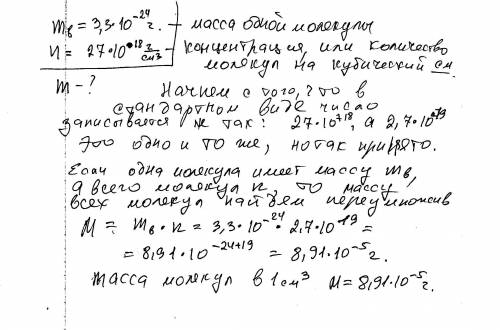 m_в = 3,3·10^-24 г. – масса одной молекулы
n = 27·10^+18 г/см³ – концентрация, или количество
молекул на кубический см.
m – ?
Начнем с того, что в
стандартном виде число
записывается не так: 27·10^+18, а 2,7·10^+19
Это одно и то же, но так принято.
Если одна молекула имеет массу m_в,
а всего молекул n, то массу
всех молекул найдем перемножив
M = m_в · n = 3,3·10^-24 · 2,7·10^19 =
= 8,91·10^-24+19 = 8,91·10^-5 г.
Масса молекул в 1 см³ M = 8,91·10^-5 г.